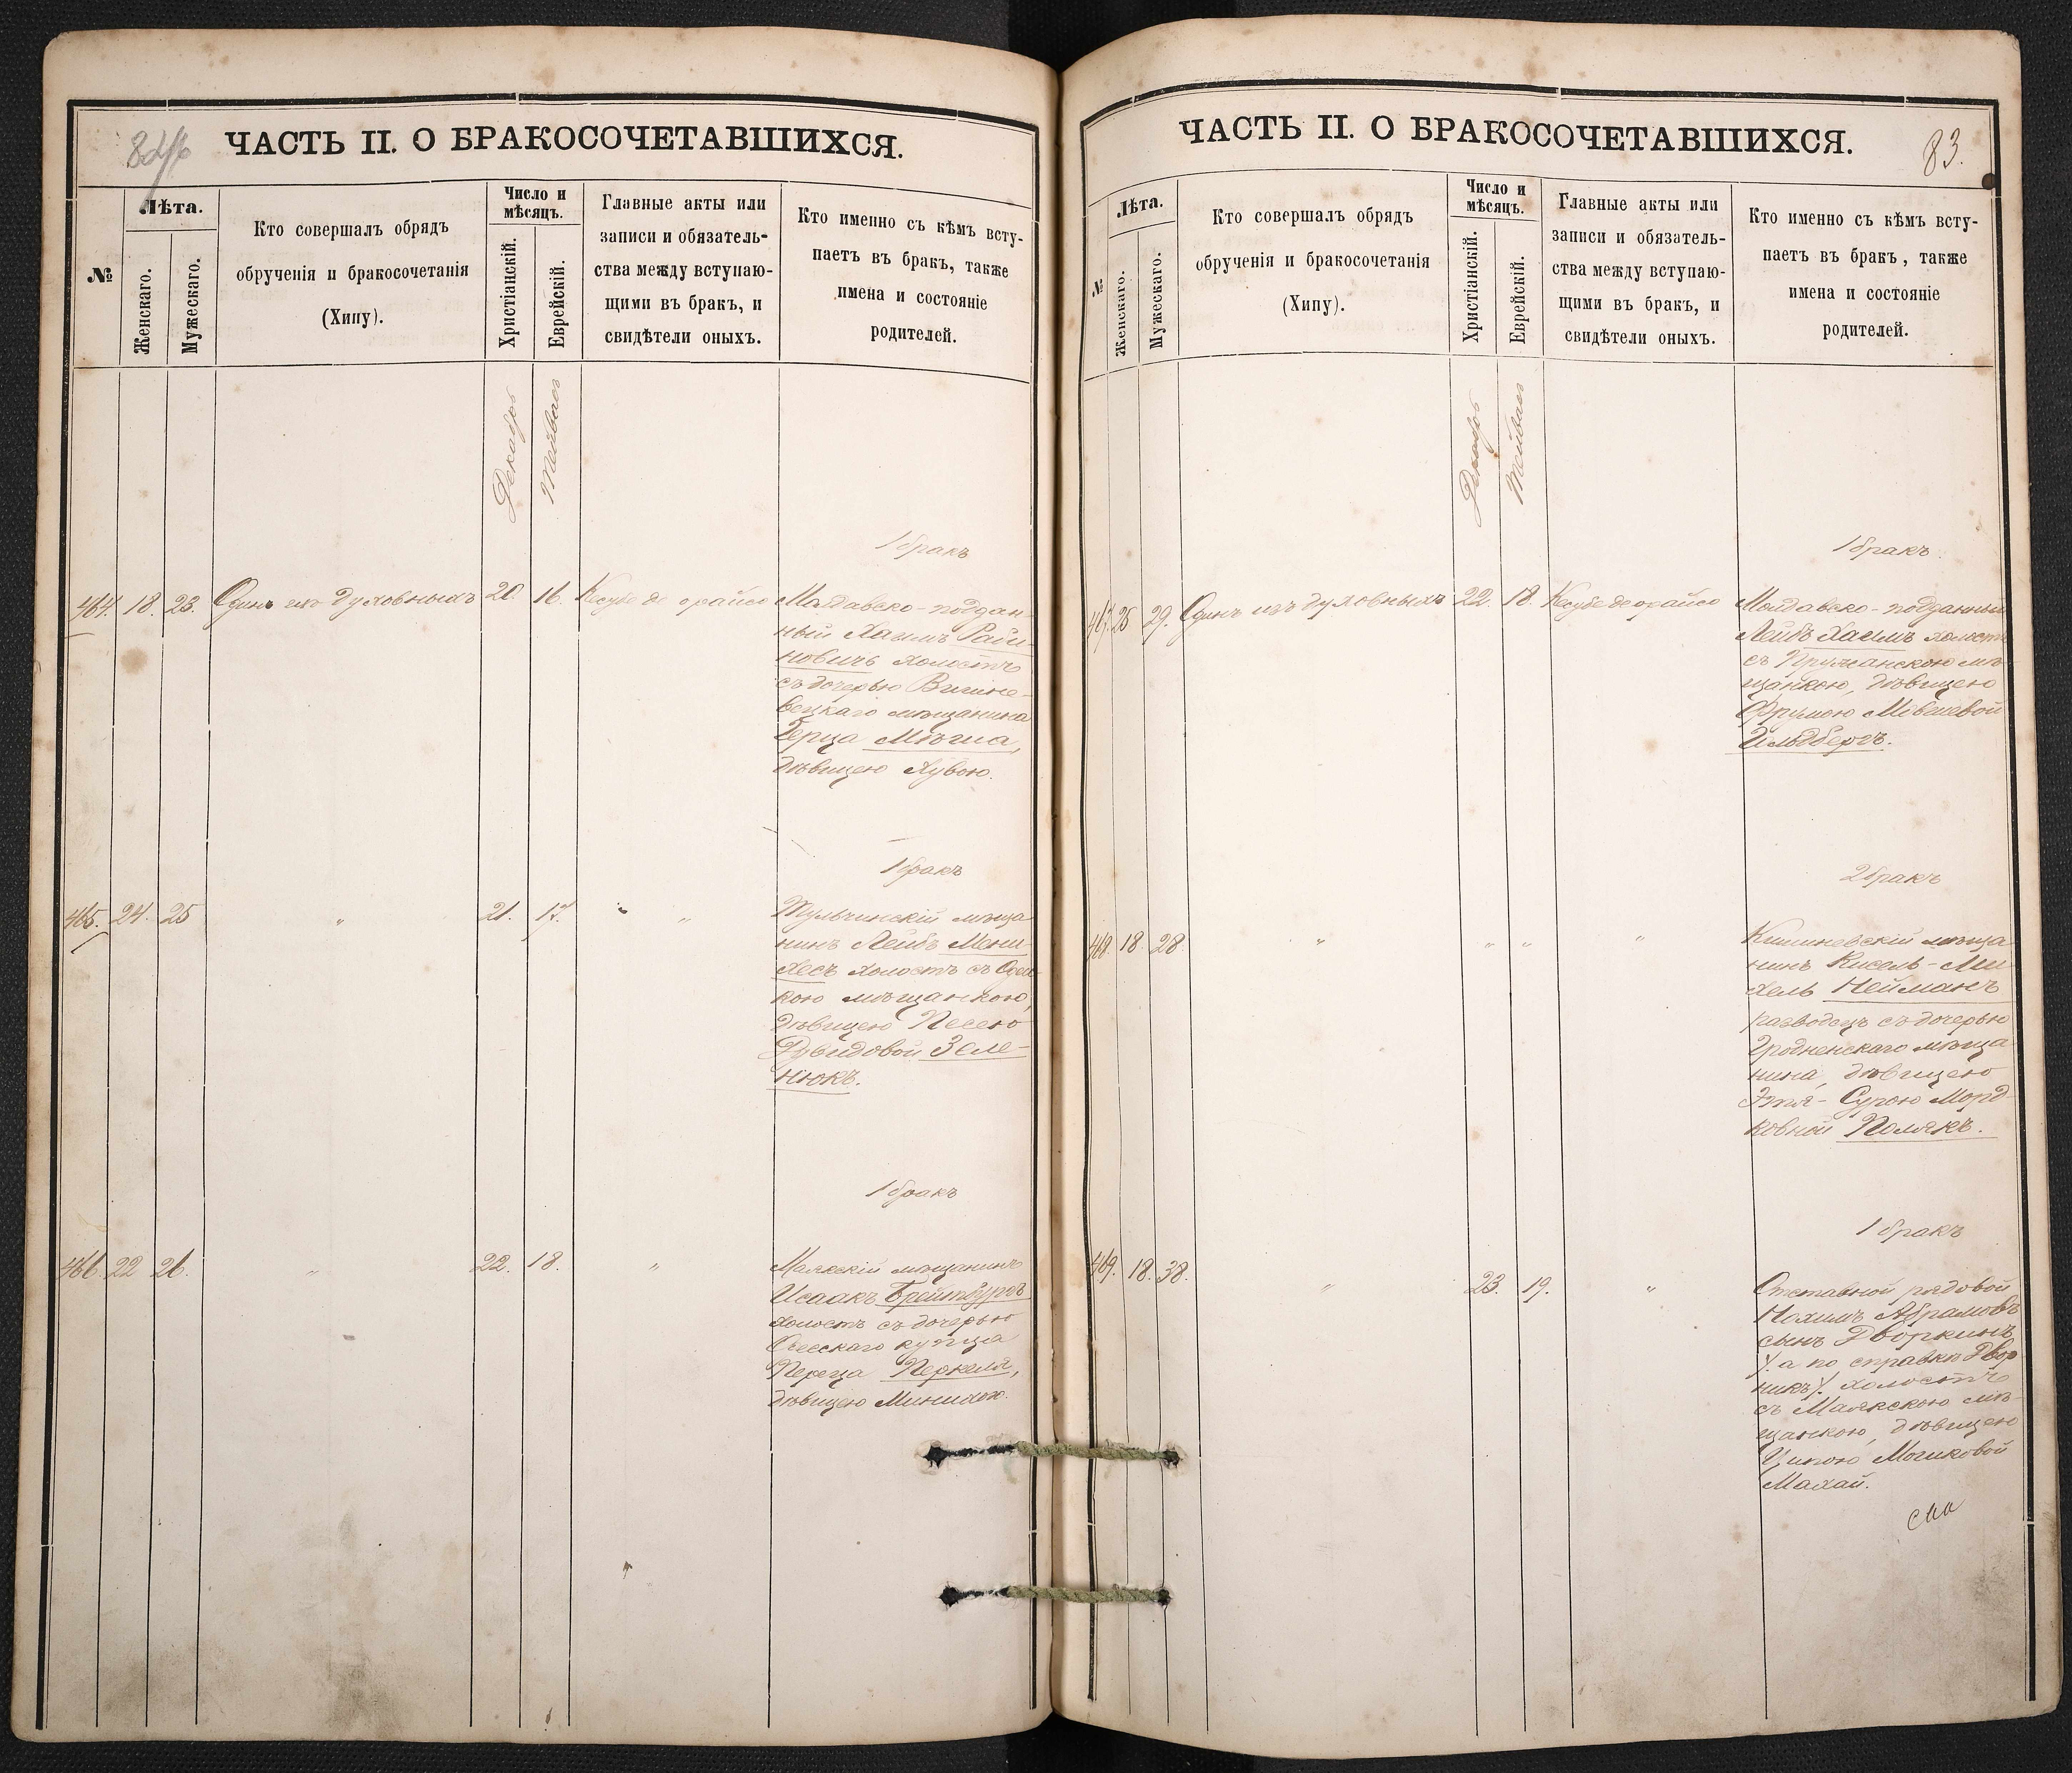 82 об
ЧАСТЬ II. О БРАКОСОЧЕТАВШИХСЯ.
№
Лѣта.
Женскаго.
Мужескаго.
Кто совершалъ обрядъ
обрученія и бракосочетанія
(Хипу).
Число и
мѣсяцъ.
Христіанскій.
Еврейскій.
Главные акты или
записи и обязатель-
ства между вступаю-
щими въ бракъ, и
свидѣтели оныхъ.
Кто именно съ кѣмъ всту-
паетъ въ бракъ, также
имена и состояніе
родителей.
Декабрь
Тейвасъ
1 бракъ
464. 18. 23. Одинъ изъ духовныхъ 20. 16. Кесубе де орайсо Молдавско-поддан-
ный Хаимъ Раби-
новичъ холостъ
съ дочерью Вишне-
вецкаго мѣщанина
Герца
дѣвицею Хувою.
1 бракъ
465. 24. 25 " 21. 17. " " Тульчинскій мѣща
нинъ Лейбъ Мени-
хесъ холостъ съ Одес
кою мѣщанкою,
дѣвицею Песею
Дувидовой Зеле-
нюкъ.
1 бракъ
466. 22 26. " 22. 18. " Маякскій мѣщанинъ
Исаакъ Брейтбургъ
холостъ съ дочерью
Одесскаго купца
Переца Перкеля,
дѣвицею Минихою.
83.
ЧАСТЬ II. О БРАКОСОЧЕТАВШИХСЯ.
№
Лѣта.
Женскаго.
Мужескаго.
Кто совершалъ обрядъ
обрученія и бракосочетанія
(Хипу).
Число и
мѣсяцъ.
Христіанскій.
Еврейскій.
Главные акты или
записи и обязатель-
ства между вступаю-
щими въ бракъ, и
свидѣтели оныхъ.
Кто именно съ кѣмъ всту-
паетъ въ бракъ, также
имена и состояніе
родителей.
Декабрь
Тейвасъ
1 бракъ
467. 25 29. Одинъ изъ духовныхъ 22. 18. Кесубе де орайсо Молдавско-подданный
Лейбъ Хаимъ холостъ
съ Пружанскою мѣ
щанкою, дѣвицею
Фрумою Мовшевой
Гольдбергъ.
2 бракъ
468. 18. 28. " " " " Кишиневскій мѣща
нинъ Кисель-Ми-
хель Нейманъ
разводецъ съ дочерью
Гродненскаго мѣща
нина, дѣвицею
Этя-Сурою Морд-
ковной Полякъ.
1 бракъ
469. 18. 38. " 23. 19. " Отставной рядовой
Нохимъ Абрамовъ
сынъ Дворкинъ
/. а по справкѣ Двор
никъ /. холостъ
съ Маякскою мѣ-
щанкою, дѣвицею
Ципою Мошковой
Махай.